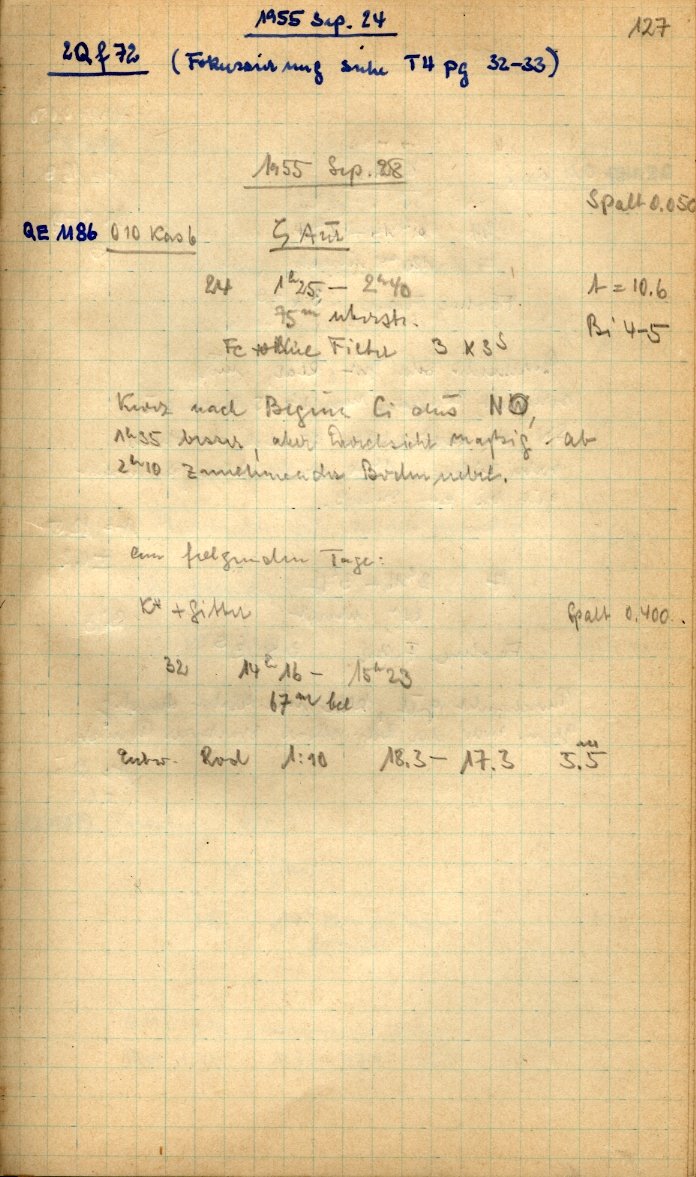 127
1955 Sep. 24
2Qf72 (Fokussierung siehe T4 pg 32-33)
1955 Sep. 28
Spalt 0.050
QE 1186 010 Kas b ζ Aur
24 1h25 - 2h40 t = 10.6
75m überstr. Bi 4-5
Fe ohne Filter 3 x 3s
Kurz nach Beginn Ci aus NO,
1h35 besser, aber Durchsicht mäßig. ab
2h10 zunehmender Bodennebel.
am folgenden Tage:
+ Gitter Spalt 0.400
32 14h16 - 15h23
67m bel
Entw. Rod 1:10 18.3 - 17.3 5.5